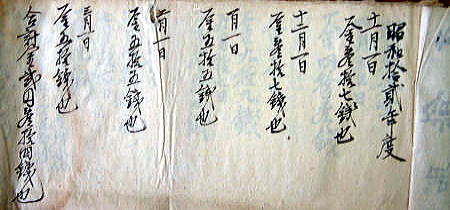 昭和拾貳年度
十一月一日
金参拾七銭也
十二月一日
金参拾七銭也
一月一日
金五拾五銭也
二月一日
金五拾五銭也
三月一日
金五拾銭也
合計金貳円参拾四銭也